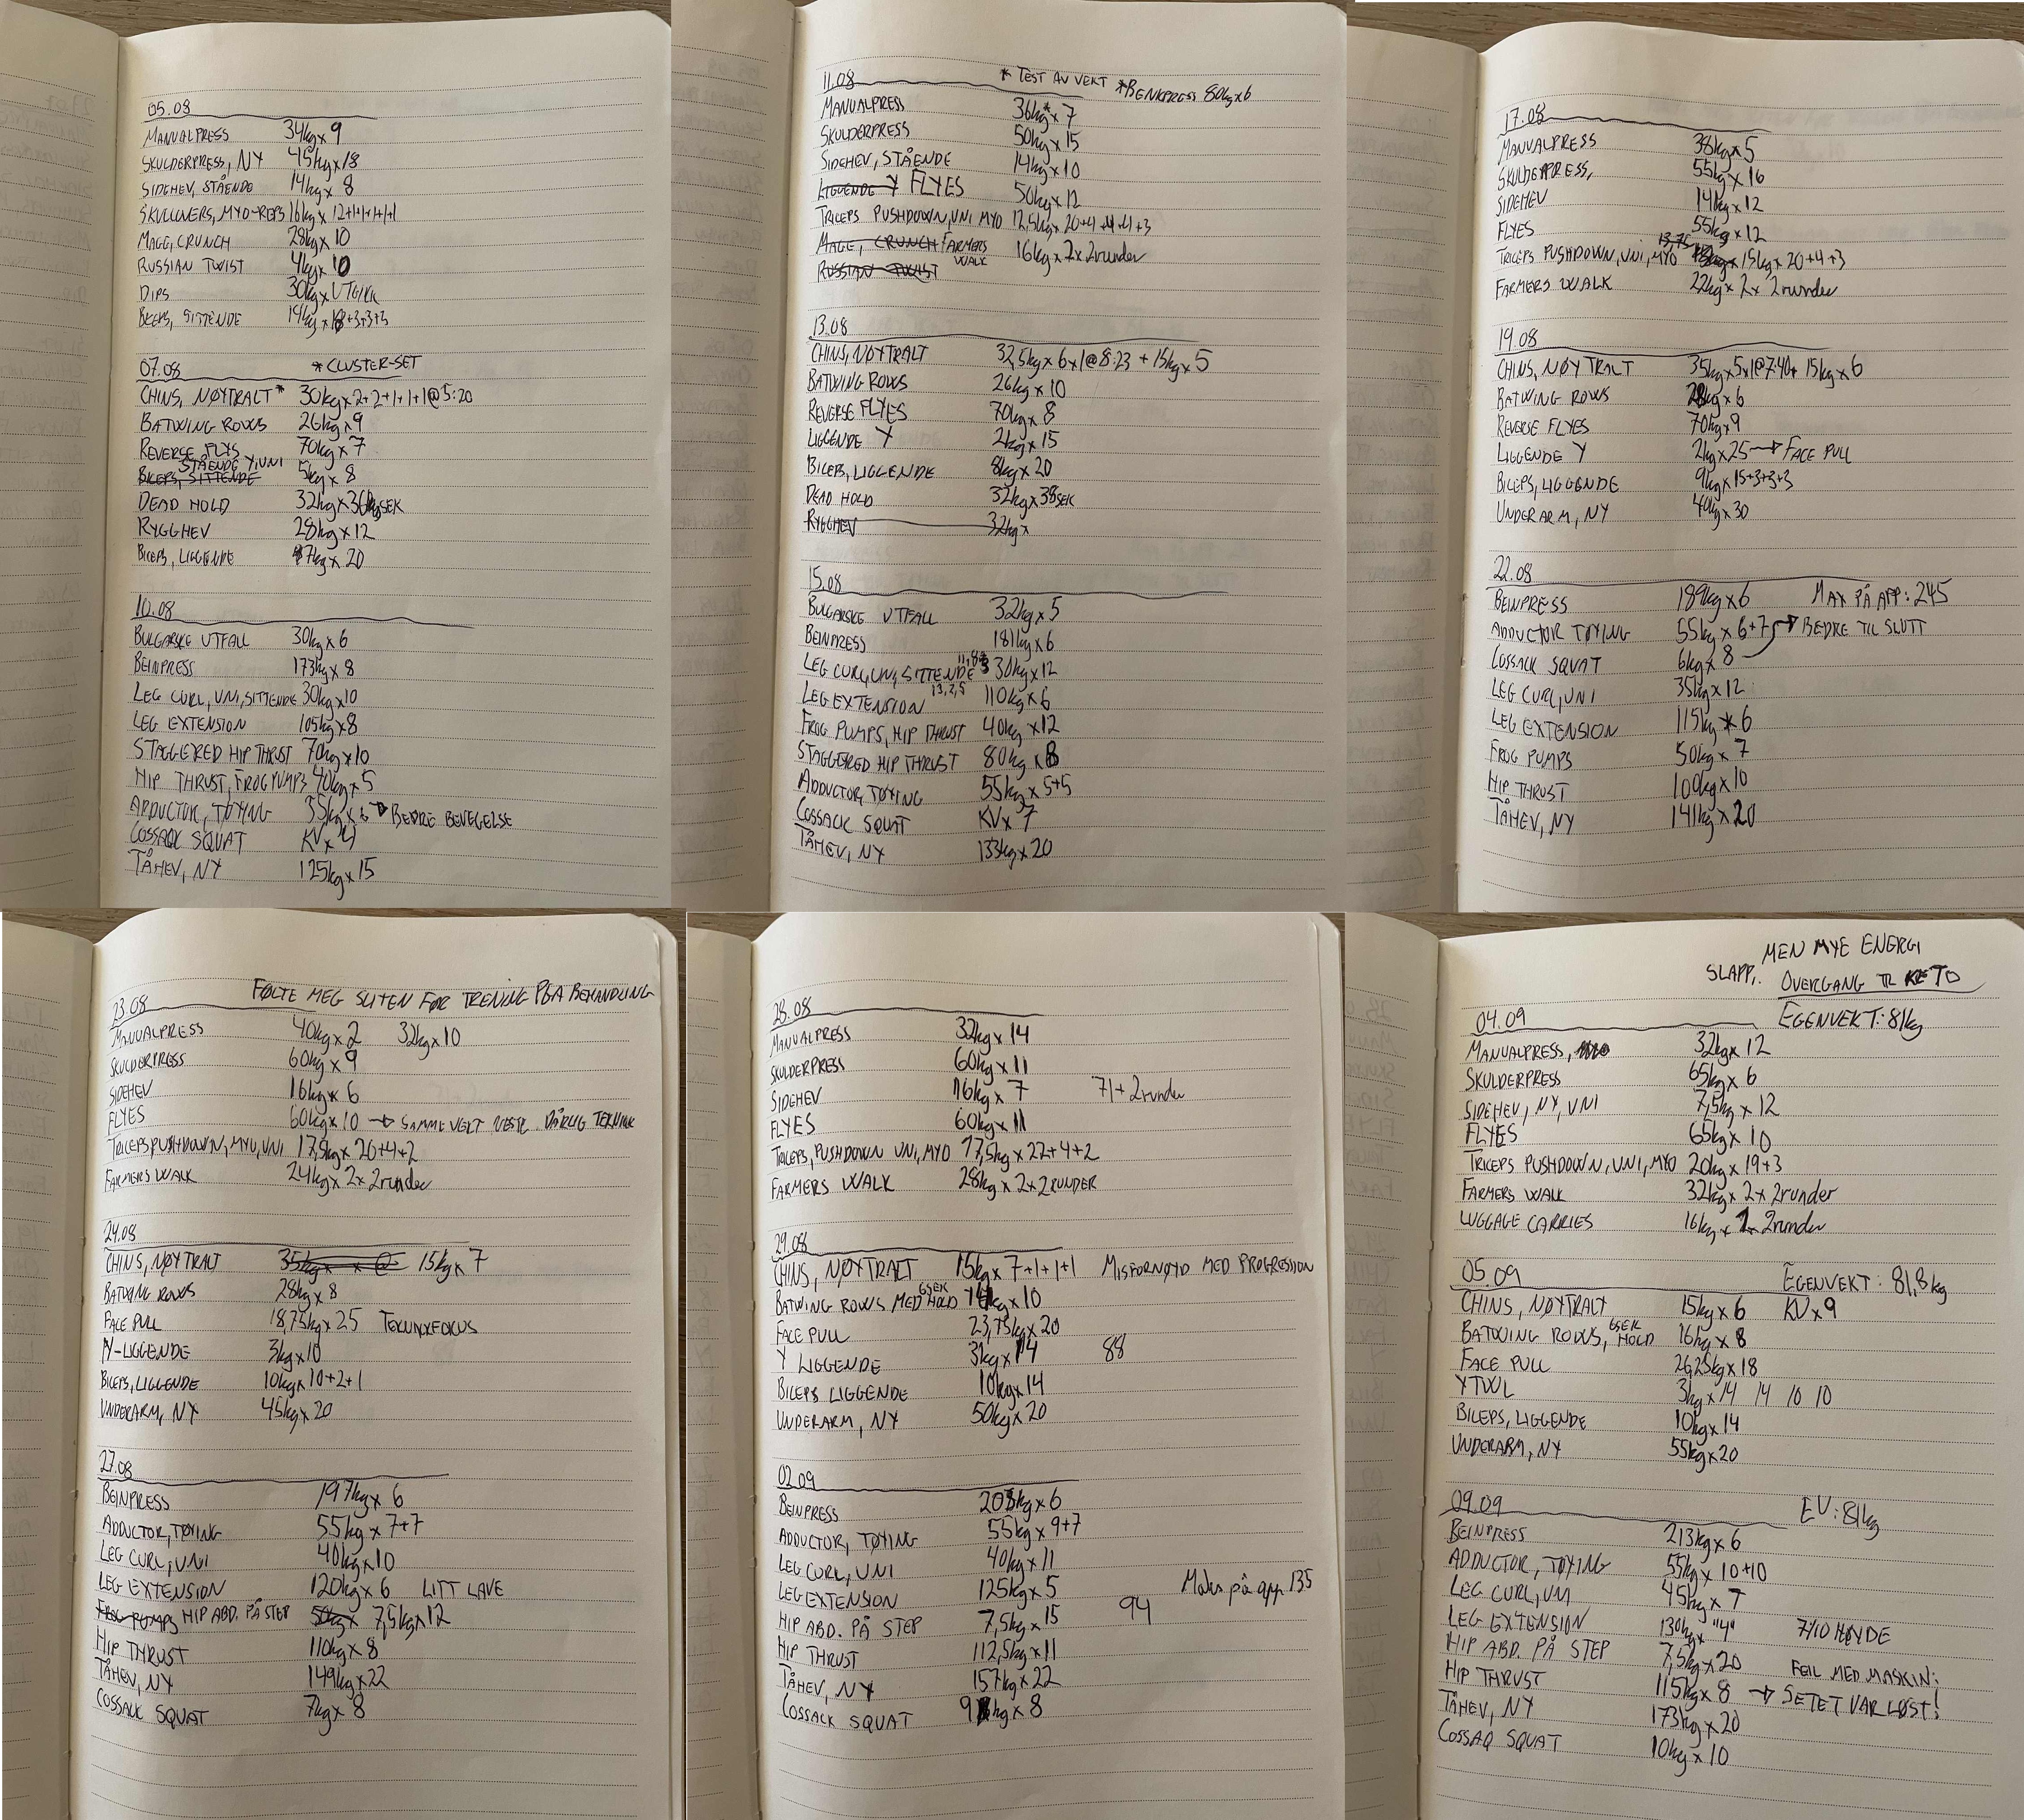 05.08
MANUALPRESS 34kg x 9
SKULDERPRESS, NY 45kg x 18
SIDEHEV, STÅENDE 14kg x 8
SKULLOVERS, MYO-REPS 16kg x 12+1+1+1+1
MAGE, CRUNCH 28kg x 10
RUSSIAN TWIST 4kg x 10
DIPS 30kg x UTGIKK
BICEPS, SITTENDE 14kg x 18+3+3+3
07.08 *CLUSTER-SET
CHINS, NØYTRALT* 30kg x 2+2+1+1+1@5:20
BATWING ROWS 26kg x 9
REVERSE FLYS 70kg x 7
STÅENDE Y, UNI
BICEPS, SITTENDE 5kg x 8
DEAD HOLD 32kg x 36 SEK
RYGGHEV 28kg x 12
BICEPS, LIGGENDE 7kg x 20
10.08
BULGARSKE UTFALL 30kg x 6
BEINPRESS 173kg x 8
LEG CURL, UNI, SITTENDE 30kg x 10
LEG EXTENSION 105kg x 8
STAGGERED HIP THRUST 70kg x 10
HIP THRUST, FROG PUMPS 40kg x 5
ADDUCTOR, TØYING 35kg x 6 → BEDRE BEVEGELSE
COSSACK SQUAT KV x 4
TÅHEV, NY 125kg x 15
11.08 * TEST AV VEKT *BENKPRESS 80kg x 6
MANUALPRESS 36kg* x 7
SKULDERPRESS 50kg x 15
SIDEHEV, STÅENDE 14kg x 10
LIGGENDE Y FLYES 50kg x 12
TRICEPS PUSHDOWN, UNI, MYO 12,5kg x 20+4+4+4+3
MAGE, CRUNCH FARMERS WALK 16kg x 2 x 2runder
RUSSIAN TWIST
13.08
CHINS, NØYTRALT 32,5kg x 6 x 1@8:23 + 15kg x 5
BATWING ROWS 26kg x 10
REVERSE FLYES 70kg x 8
LIGGENDE Y 2kg x 15
BICEPS, LIGGENDE 8kg x 20
DEAD HOLD 32kg x 38SEK
RYGGHEV 32kg x
15.08
BULGARSKE UTFALL 32kg x 5
BEINPRESS 181kg x 6
LEG CURL, UNI, SITTENDE 30kg x 12
LEG EXTENSION 110kg x 6
FROG PUMPS, HIP THRUST 40kg x 12
STAGGERED HIP THRUST 80kg x 8
ADDUCTOR, TØYING 55kg x 5+5
COSSACK SQUAT KV x 7
TÅHEV, NY 133kg x 20
17.08
MANUALPRESS 38kg x 5
SKULDERPRESS, 55kg x 16
SIDEHEV 14kg x 12
FLYES 55kg x 12
13,75
TRICEPS PUSHDOWN, UNI, MYO 15kg x 20+4+3
FARMERS WALK 22kg x 2 x 2runder
19.08
CHINS, NØYTRALT 35kg x 5 x 1@7:40 + 15kg x 6
BATWING ROWS 28kg x 6
REVERSE FLYES 70kg x 9
LIGGENDE Y 2kg x 25 → FACE PULL
BICEPS, LIGGENDE 9kg x 15+3+3+3
UNDERARM, NY 40kg x 30
22.08
BEINPRESS 189kg x 6 MAX PÅ APP: 245
ADDUCTOR TØYING 55kg x 6+7 → BEDRE TIL SLUTT
COSSACK SQUAT 6kg x 8
LEG CURL, UNI 35kg x 12
LEG EXTENSION 115kg x 6
FROG PUMPS 50kg x 7
HIP THRUST 100kg x 10
TÅHEV, NY 141kg x 20
23.08 FØLTE MEG SLITEN FØR TRENING PGA BEHANDLING
MANUALPRESS 40kg x 2 32kg x 10
SKULDERPRESS 60kg x 9
SIDEHEV 16kg x 6
FLYES 60kg x 10 → SAMME VEKT NESTE. DÅRLIG TEKNIKK
TRICEPS, PUSHDOWN, MYO, UNI 17,5kg x 20+4+2
FARMERS WALK 24kg x 2 x 2runder
24.08
CHINS, NØYTRALT 35kg x x @ 15kg x 7
BATWING ROWS 28kg x 8
FACE PULL 18,75kg x 25 TEKNIKKFOKUS
Y-LIGGENDE 3kg x 10
BICEPS, LIGGENDE 10kg x 10+2+1
UNDERARM, NY 45kg x 20
27.08
BEINPRESS 197kg x 6
ADDUCTOR, TØYING 55kg x 7+7
LEG CURL, UNI 40kg x 10
LEG EXTENSION 120kg x 6 LITT LAVE
FROG PUMPS HIP ABD. PÅ STEP 50kg x 7,5kg x 12
HIP THRUST 110kg x 8
TÅHEV, NY 149kg x 22
COSSACK SQUAT 7kg x 8
28.08
MANUALPRESS 32kg x 14
SKULDERPRESS 60kg x 11
SIDEHEV 16kg x 7 71+2runder
FLYES 60kg x 11
TRICEPS, PUSHDOWN UNI, MYO 17,5kg x 22+4+2
FARMERS WALK 28kg x 2 x 2RUNDER
29.08
CHINS, NØYTRALT 15kg x 7+1+1+1 MISFORNØYD MED PROGRESJON
BATWING ROWS MED 6SEK HOLD 14kg x 10
FACE PULL 23,75kg x 20
Y LIGGENDE 3kg x 14 88
BICEPS LIGGENDE 10kg x 14
UNDERARM, NY 50kg x 20
02.09
BEINPRESS 205kg x 6
ADDUCTOR, TØYING 55kg x 9+7
LEG CURL, UNI 40kg x 11
LEG EXTENSION 125kg x 5 Maks på app 135
HIP ABD. PÅ STEP 7,5kg x 15 94
HIP THRUST 112,5kg x 11
TÅHEV, NY 157kg x 22
COSSACK SQUAT 9kg x 8
MEN MYE ENERGI
SLAPP, OVERGANG TIL KETO
04.09 EGENVEKT: 81kg
MANUALPRESS, 32kg x 12
SKULDERPRESS 65kg x 6
SIDEHEV, NY, UNI 7,5kg x 12
FLYES 65kg x 10
TRICEPS PUSHDOWN, UNI, MYO 20kg x 19+3
FARMERS WALK 32kg x 2 x 2runder
LUGGAGE CARRIES 16kg x 1 x 2runder
05.09 EGENVEKT: 81,8kg
CHINS, NØYTRALT 15kg x 6 KV x 9
BATWING ROWS, 6SEK HOLD 16kg x 8
FACE PULL 26,25kg x 18
YTWL 3kg x 14 14 10 10
BICEPS, LIGGENDE 10kg x 14
UNDERARM, NY 55kg x 20
09.09 EV: 81kg
BEINPRESS 213kg x 6
ADDUCTOR, TØYING 55kg x 10+10
LEG CURL, UNI 45kg x 7
LEG EXTENSION 130kg x "4" 7/10 HØYDE
HIP ABD. PÅ STEP 7,5kg x 20 FEIL MED MASKIN:
HIP THRUST 115kg x 8 → SETET VAR LØST!
TÅHEV, NY 173kg x 20
COSSAQ SQUAT 10kg x 10